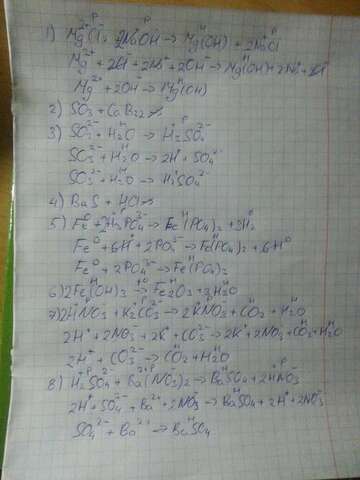 1) MgCl₂ + 2NaOH → Mg(OH) + 2NaCl
Mg²⁺ + 2Cl⁻ + 2Na⁺ + 2OH⁻ → Mg(OH) + 2Na⁺ +
Mg²⁺ + 2OH⁻ → Mg(OH)
2) SO₃ +
3) SO₃²⁻ + H₂O → H₂SO₄²⁻
SO₃²⁻ + H₂O → 2H⁺ + SO₄²⁻
SO₃²⁻ + H₂O → H₂SO₄²⁻
4) BaS + HCl
5) Fe⁰ + 2H₃PO₄ → Fe(PO₄)₂ + 3H₂
Fe⁰ + 6H⁺ + 2PO₄³⁻ → Fe(PO₄)₂ + 6H⁰
Fe⁰ + 2PO₄³⁻ → Fe(PO₄)₂
6) 2Fe(OH)₃ →t⁰ Fe₂O₃ + 3H₂O
7) 2HNO₃ + K₂CO₃ → 2KNO₃ + CO₂ + H₂O
2H⁺ + 2NO₃⁻ + 2K⁺ + CO₃²⁻ → 2K⁺ + 2NO₃⁻ + CO₂ + H₂O
2H⁺ + CO₃²⁻ → CO₂ + H₂O
8) H₂SO₄ + Ba(NO₃)₂ → BaSO₄ + 2HNO₃
2H⁺ + SO₄²⁻ + Ba²⁺ + 2NO₃⁻ → BaSO₄ + 2H⁺ + 2NO₃⁻
SO₄²⁻ + Ba²⁺ → BaSO₄